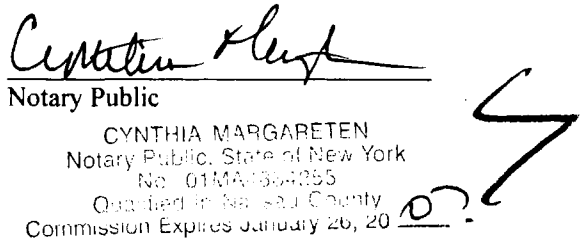 Notary Public
CYNTHIA MARGARETEN
Notary Public, State of New York
No.
Qualified in Nassau County
Commission Expires January 26, 20